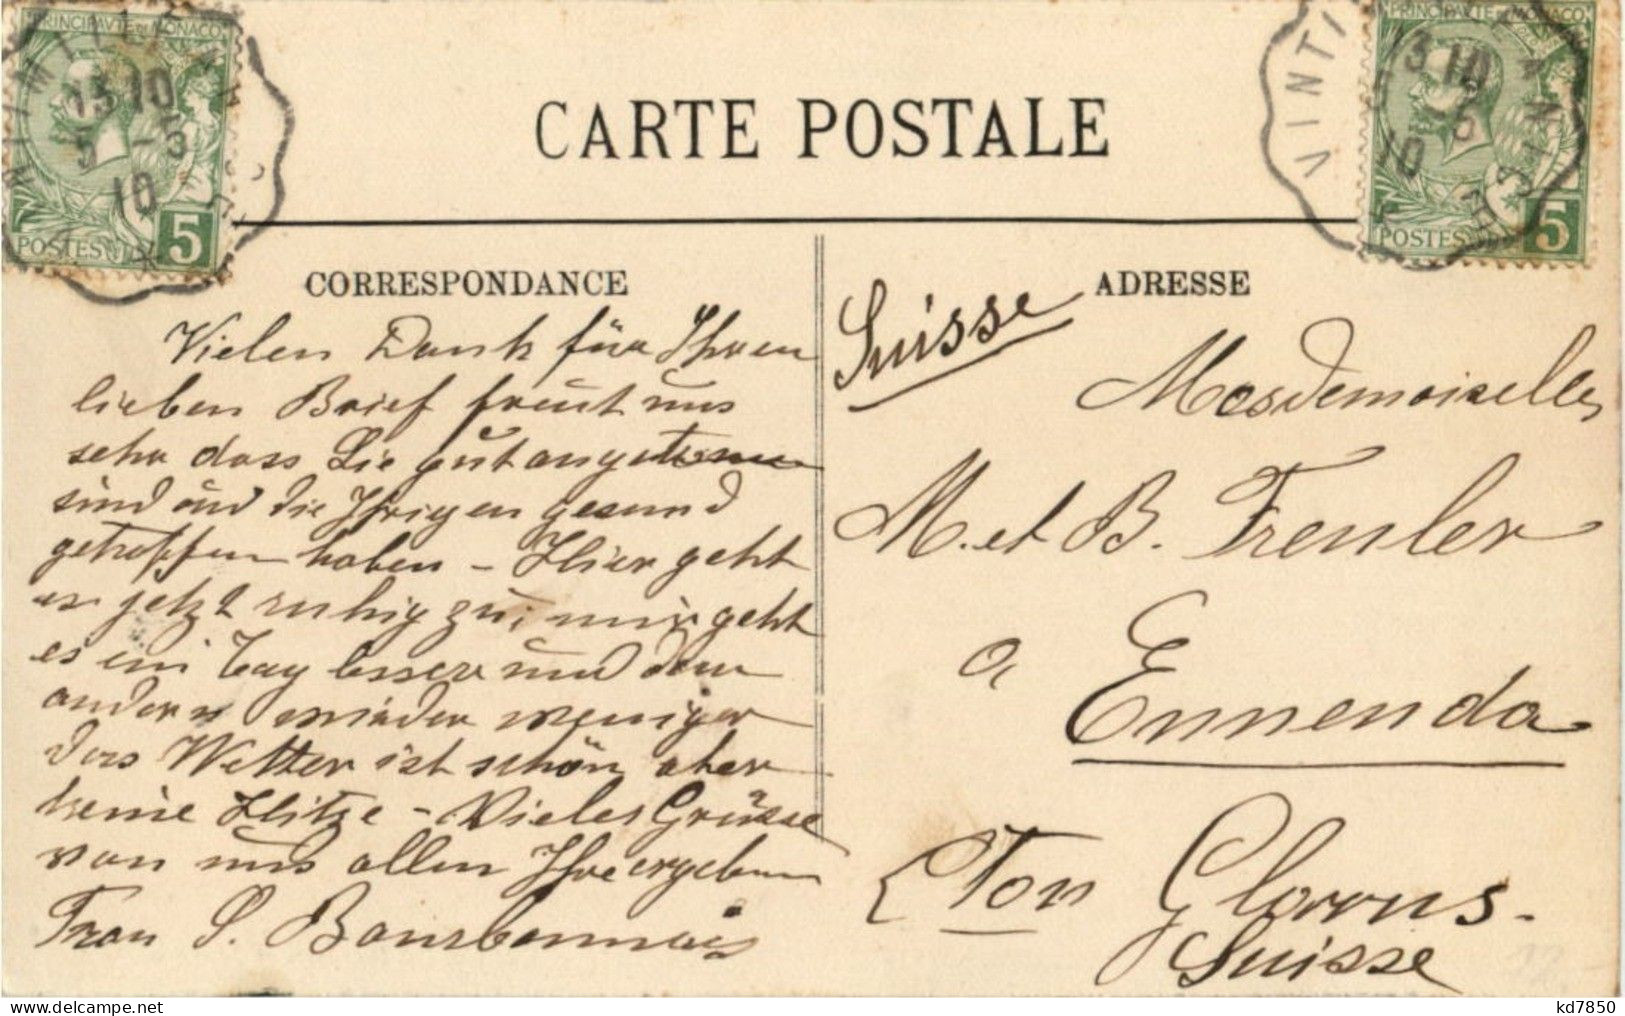 PRINCIPAUTE DE MONACO
13 10
5 -5
10
POSTES 5
PRINCIPAUTE DE MONACO
VINTI
13 10
5 -5
10
POSTES 5
CARTE POSTALE
CORRESPONDANCE
ADRESSE
Vielen Dank für Ihren
lieben Brief freut uns
sehr dass Sie gut
sind und die Ihrigen gesund
getroffen haben - Hier geht
es jetzt ruhig zu, mir geht
es ein Tag besser und dem
andern minder weniger
das Wetter ist schön aber
keine Hitze - Vieles Grüsse
von uns allen Ihre ergeben
Frau S. Bourbonnais
Suisse
Mesdemoiselles
M. et B. Freuler
a
Ennenda
Cton Glarus -
Suisse
kd7850